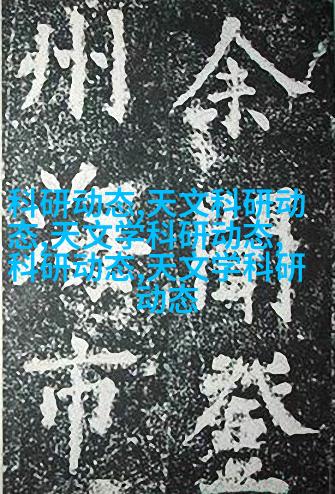 余
登
州
市
科研动态,天文科研动
态,天文学科研动态,
科研动态,天文学科研
动态